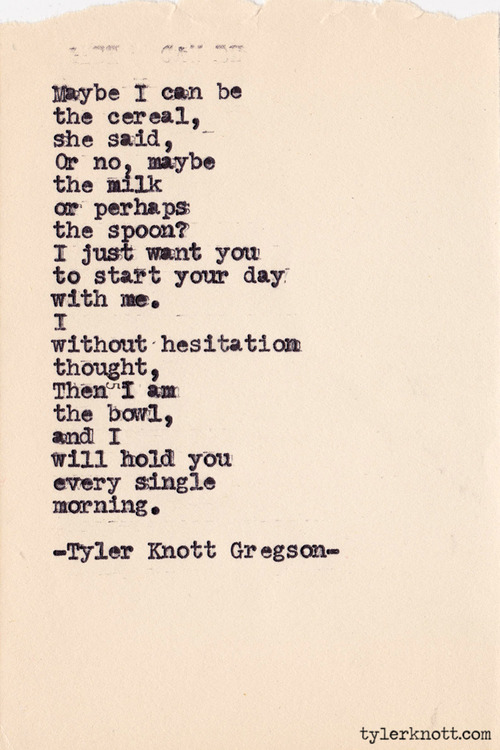 Maybe I can be
the cereal,
she said,
Or no, maybe
the milk
or perhaps
the spoon?
I just want you
to start your day
with me.
I
without hesitation
thought,
Then I am
the bowl,
and I
will hold you
every single
morning.
-Tyler Knott Gregson-
tylerknott.com